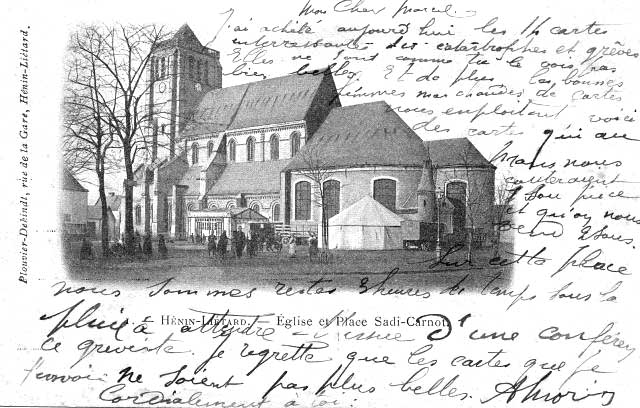 Mon Cher Marcel.
J'ai acheté aujourd'hui les 14 cartes
interressantes des catastrophes et grèves
Elles ne sont comme tu le vois pas
bien belles. Et de plus les bonnes
femmes marchandes de cartes
nous exploitent voici
des cartes qui au
Mans nous
couteraient
1 sou pièce
et qu'on nous
vend 2 sous.
Sur cette place
nous sommes restés 3 heures de temps sous la
pluie à attendre l'issue d'une conférence
ce greviste. Je regrette que les cartes que je
t'envoie ne soient pas plus belles.
Cordialement à toi.
HÉNIN-LIÉTARD. — Église et Place Sadi-Carnot.
Plouvier-Dehindt, rue de la Gare, Hénin-Liétard.